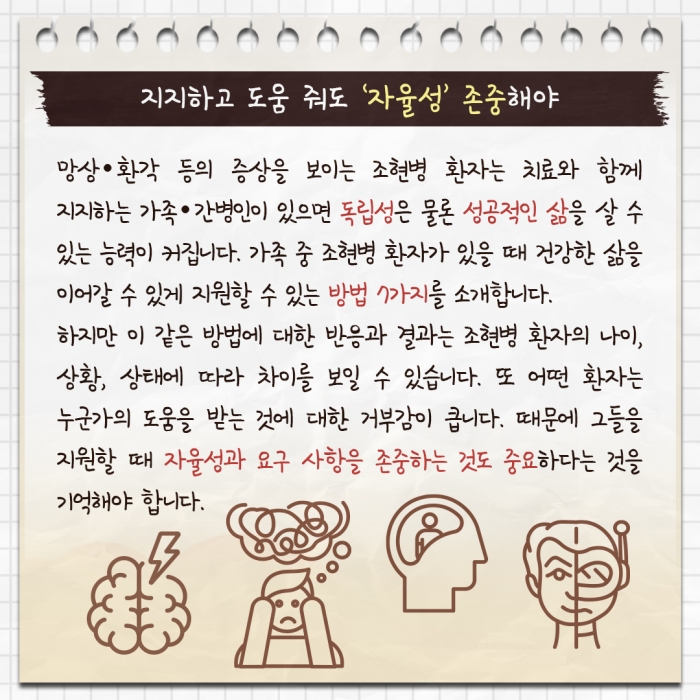 지지하고 도움 줘도 ‘자율성’ 존중해야
망상•환각 등의 증상을 보이는 조현병 환자는 치료와 함께
지지하는 가족•간병인이 있으면 독립성은 물론 성공적인 삶을 살 수
있는 능력이 커집니다. 가족 중 조현병 환자가 있을 때 건강한 삶을
이어갈 수 있게 지원할 수 있는 방법 7가지를 소개합니다.
하지만 이 같은 방법에 대한 반응과 결과는 조현병 환자의 나이,
상황, 상태에 따라 차이를 보일 수 있습니다. 또 어떤 환자는
누군가의 도움을 받는 것에 대한 거부감이 큽니다. 때문에 그들을
지원할 때 자율성과 요구 사항을 존중하는 것도 중요하다는 것을
기억해야 합니다.